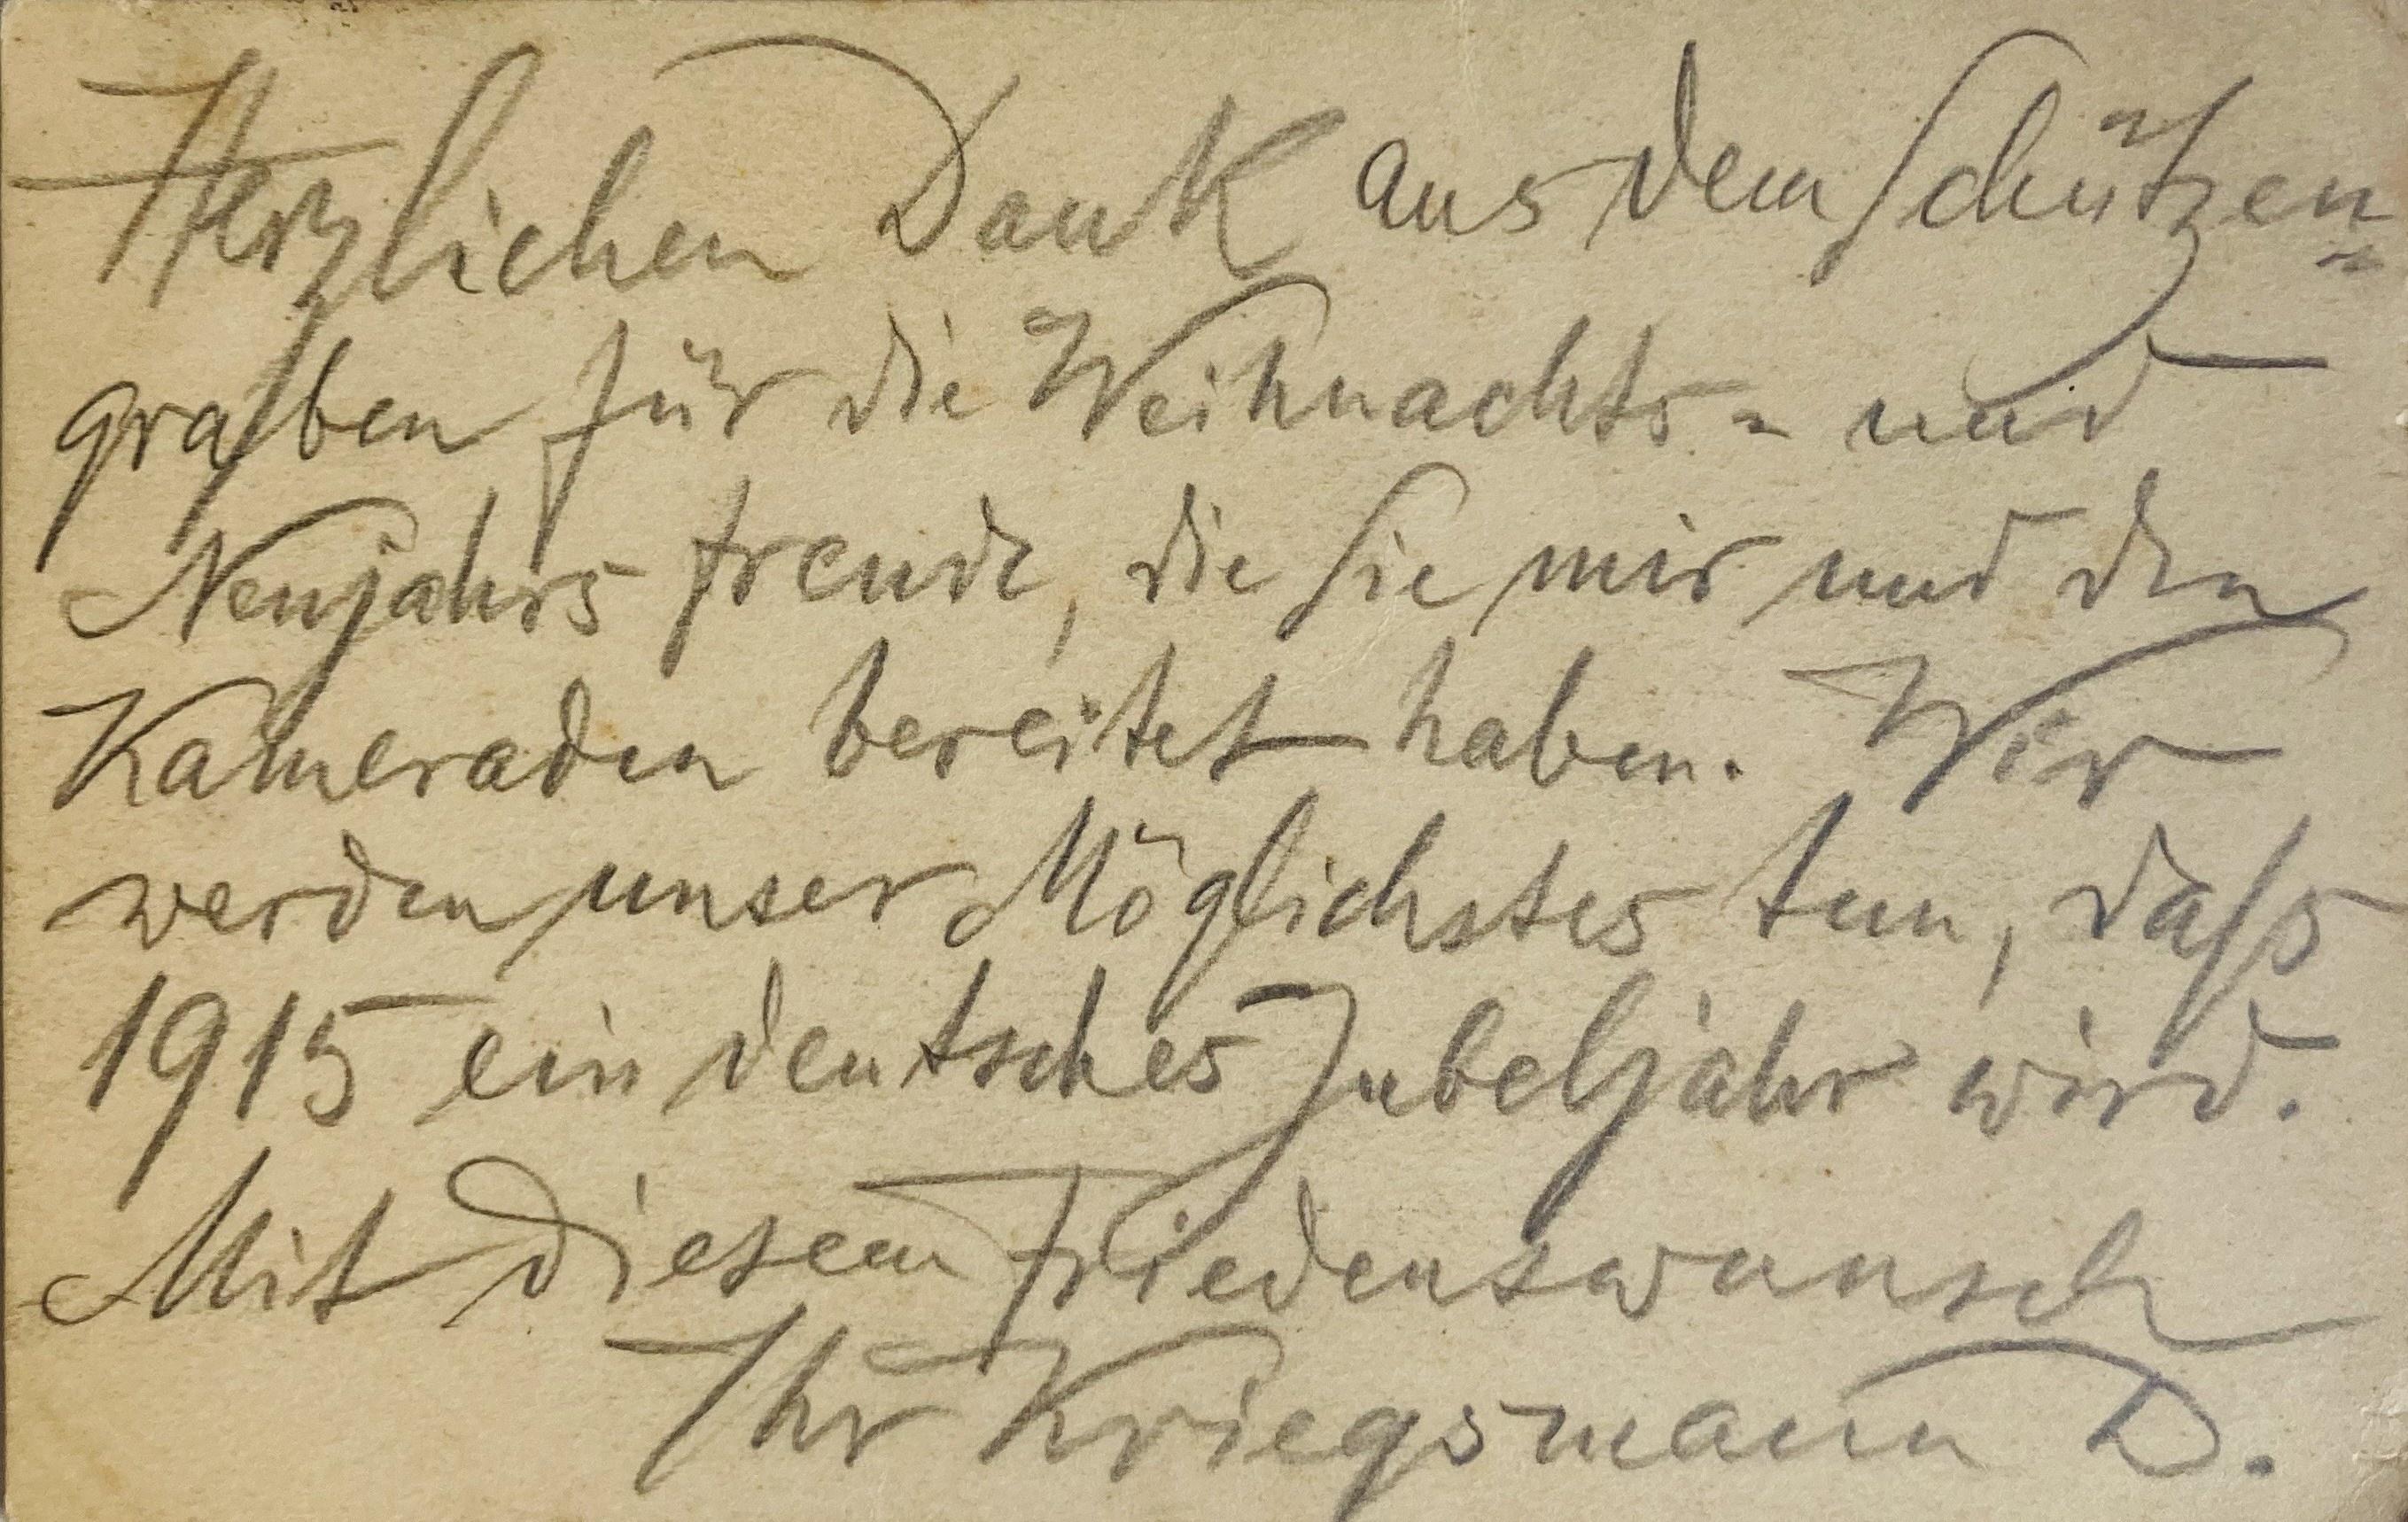 Herzlichen Dank aus dem Schützen=
graben für die Weihnachts= und
Neujahrsfreude, die Sie mir und den
Kameraden bereitet haben. Wir
werden unser Möglichstes tun, daß
1915 ein deutsches Jubeljahr wird.
Mit diesem Friedenswunsch
Ihr Kriegsmann D.